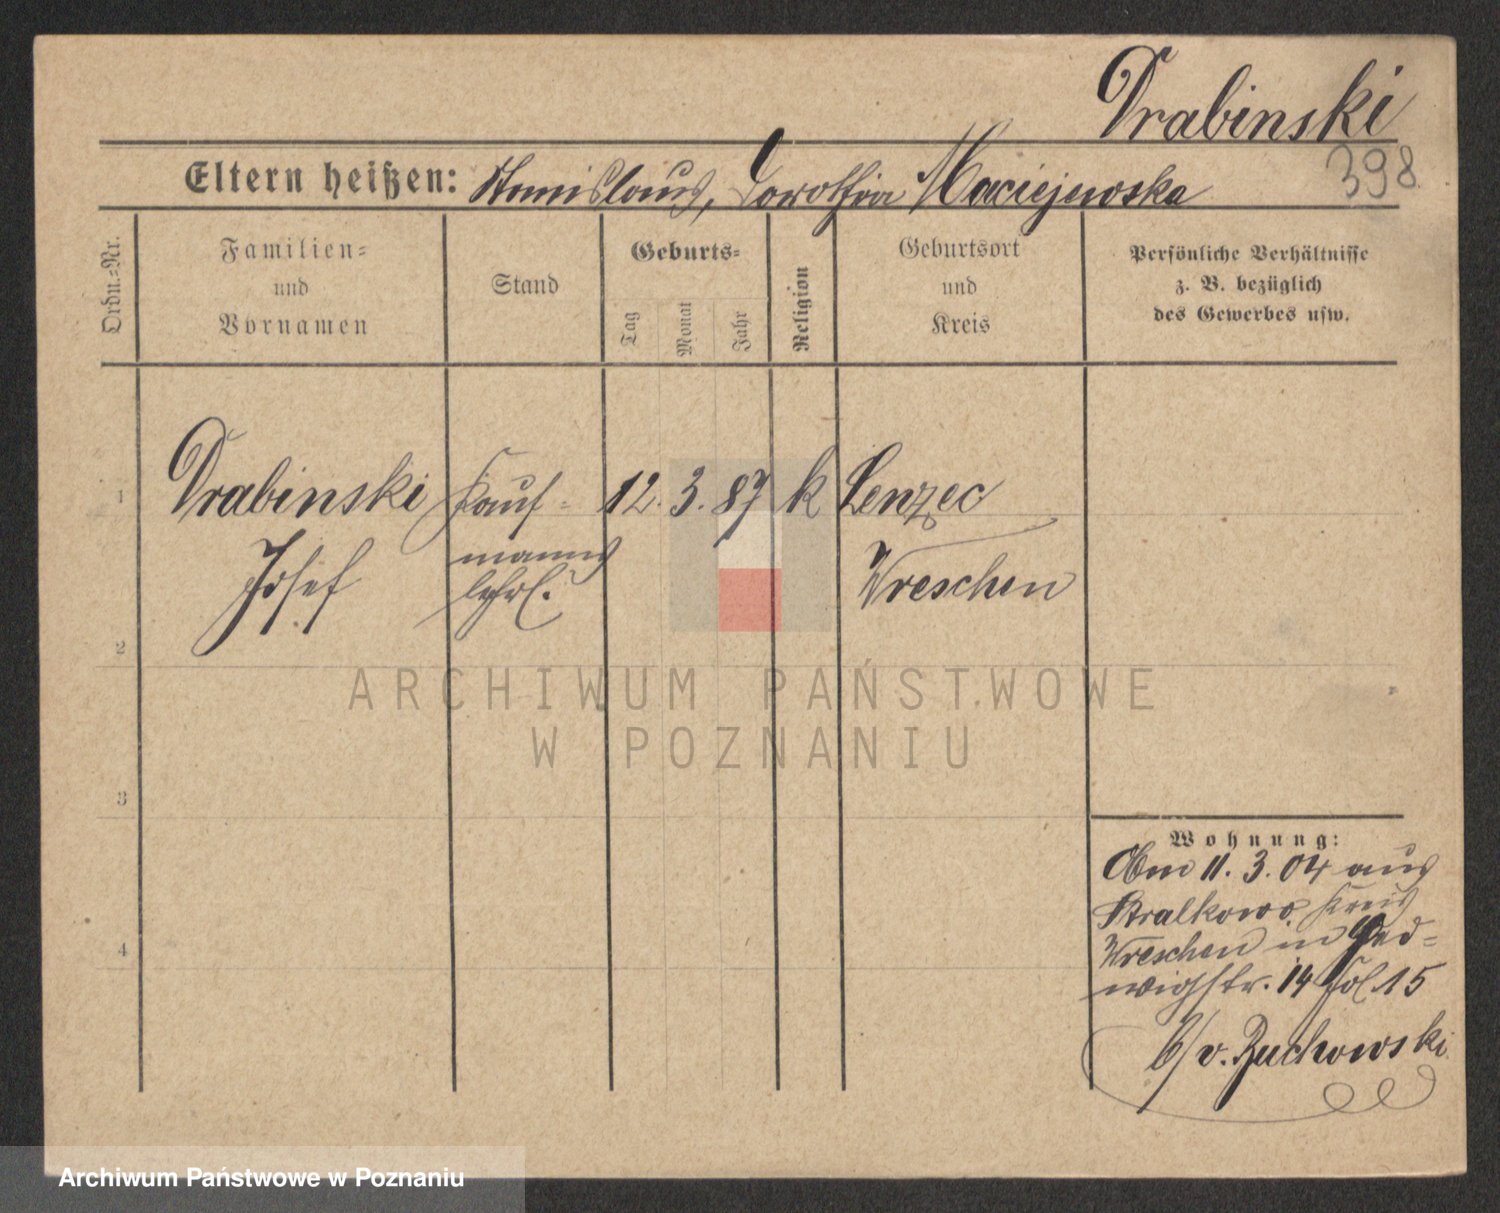 Drabinski
398
Eltern heißen: Stanislaus, Dorothea Maciejewska
Ordn.=Nr.
Familien=
und
Vornamen
Stand
Geburts=
Tag
Monat
Jahr
Religion
Geburtsort
und
Kreis
Persönliche Verhältnisse
z. B. bezüglich
des Gewerbes usw.
1
Drabinski Kauf= 12. 3. 87 k Lenzec
manns
Josef lehrl. Wreschen
2
3
4
Wohnung:
Am 11. 3. 04 aus
Stralkowo Kreis
Wreschen in Hed=
wigstr. 14 Fol. 15
b/ v. Zuchowski
ARCHIWUM PAŃSTWOWE
W POZNANIU
Archiwum Państwowe w Poznaniu